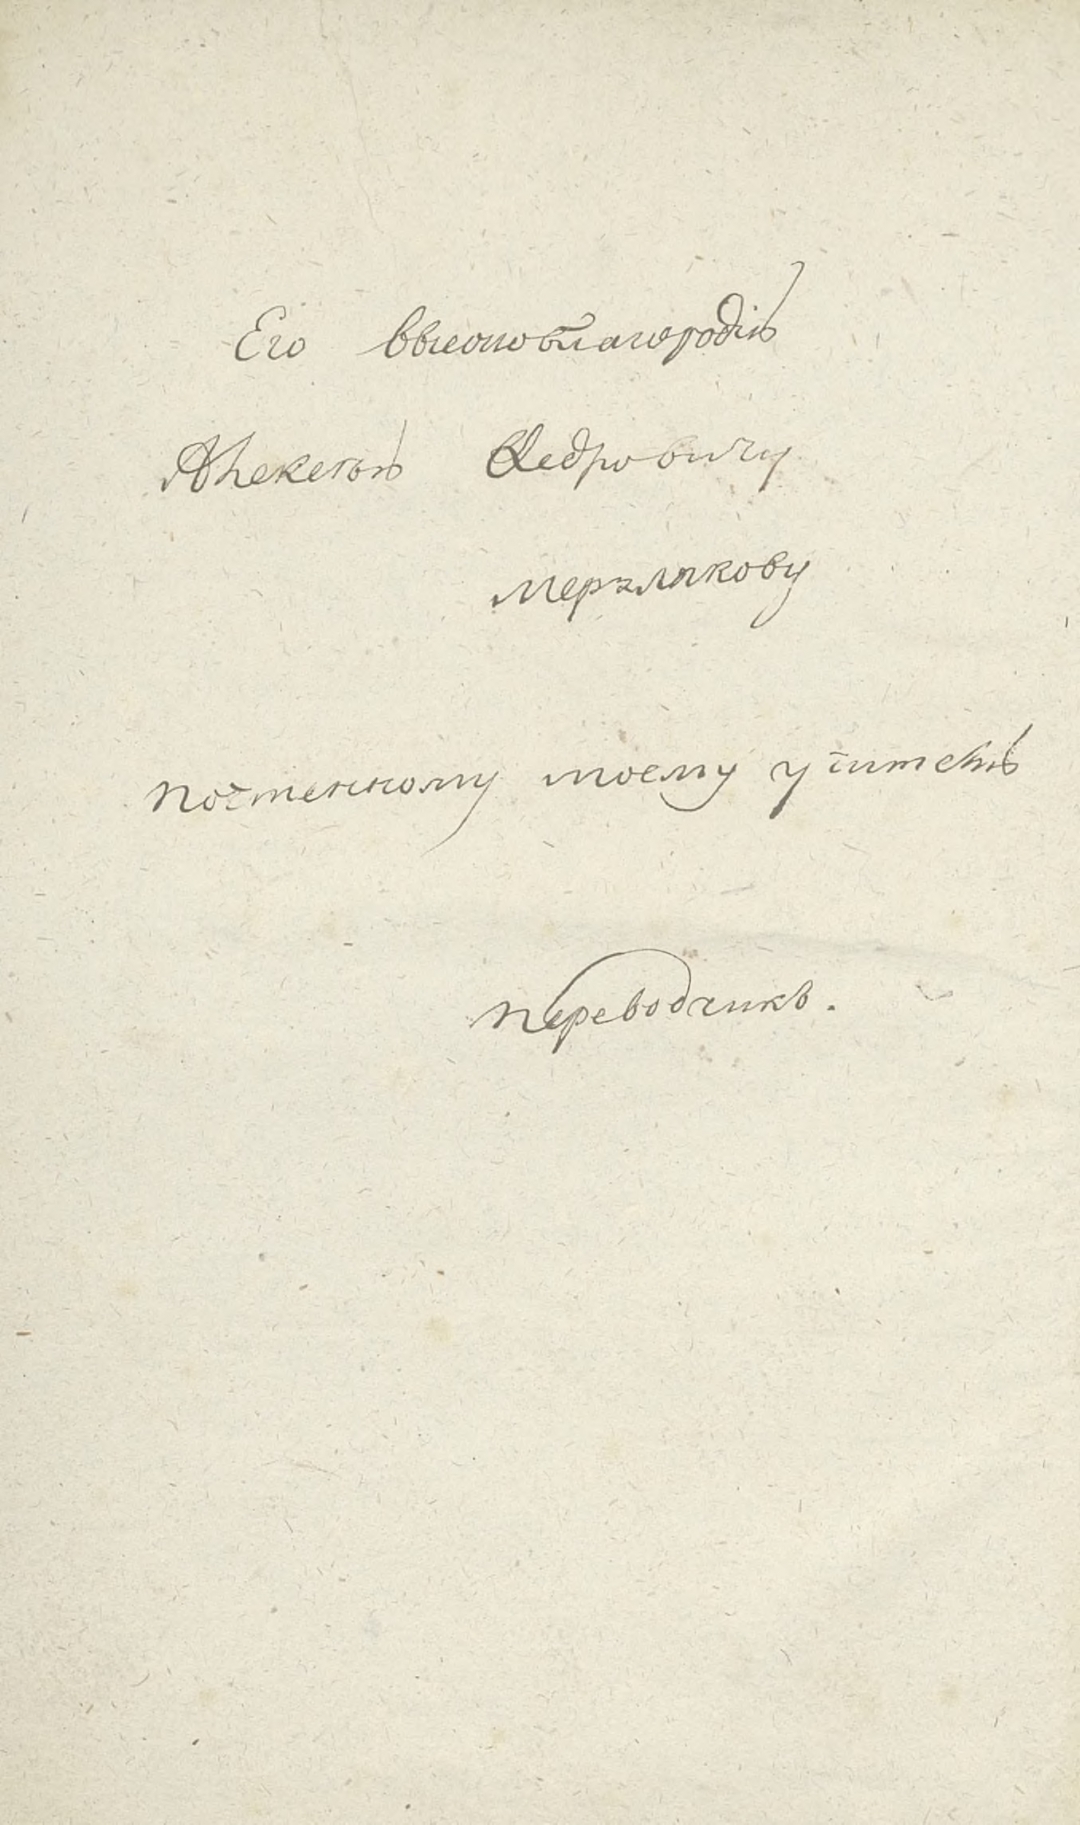 Его высокоблагородію
Алексѣю Ѳедровичу
мерзлякову
почтенному моему учителю
переводчикъ.